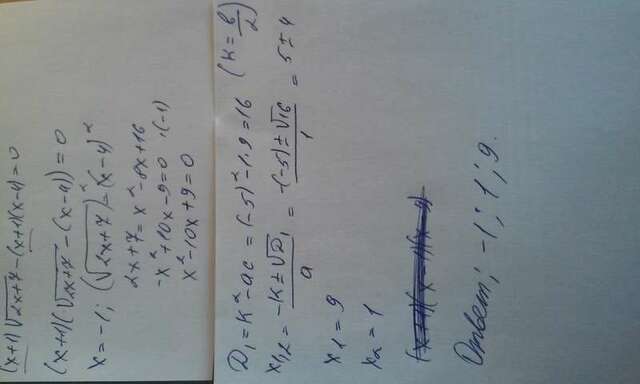 (x+1)√(2x+7) - (x+1)(x-4) = 0
(x+1)(√(2x+7) - (x-4)) = 0
x = -1; (√(2x+7))² = (x-4)²
2x+7 = x² - 8x + 16
-x² + 10x - 9 = 0 ·(-1)
x² - 10x + 9 = 0
D₁ = k² - ac = (-5)² - 1·9 = 16 (k = b/2)
x₁,₂ = (-k ± √D₁)/a = (-(-5) ± √16)/1 = 5 ± 4
x₁ = 9
x₂ = 1
Ответ: -1; 1; 9.